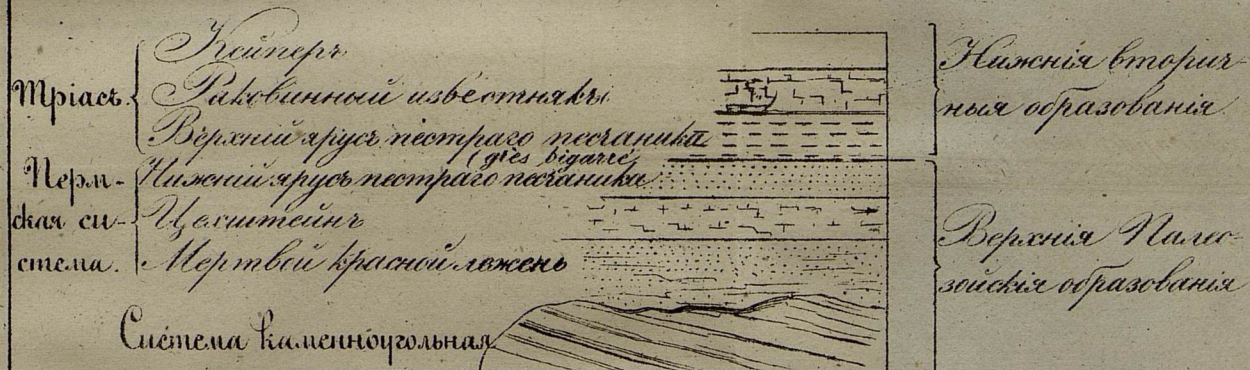 Кейперъ
Тріасъ.
Раковинный известнякъ
Верхній ярусъ пестраго песчаника
(grès bigarré
Нижній ярусъ пестраго песчаника
Перм-
ская си-
стема.
Цехштейнъ
Мертвой красной лежень
Система каменноугольная
Нижнія вторич-
ныя образованія
Верхнія Палео-
зойскія образованія